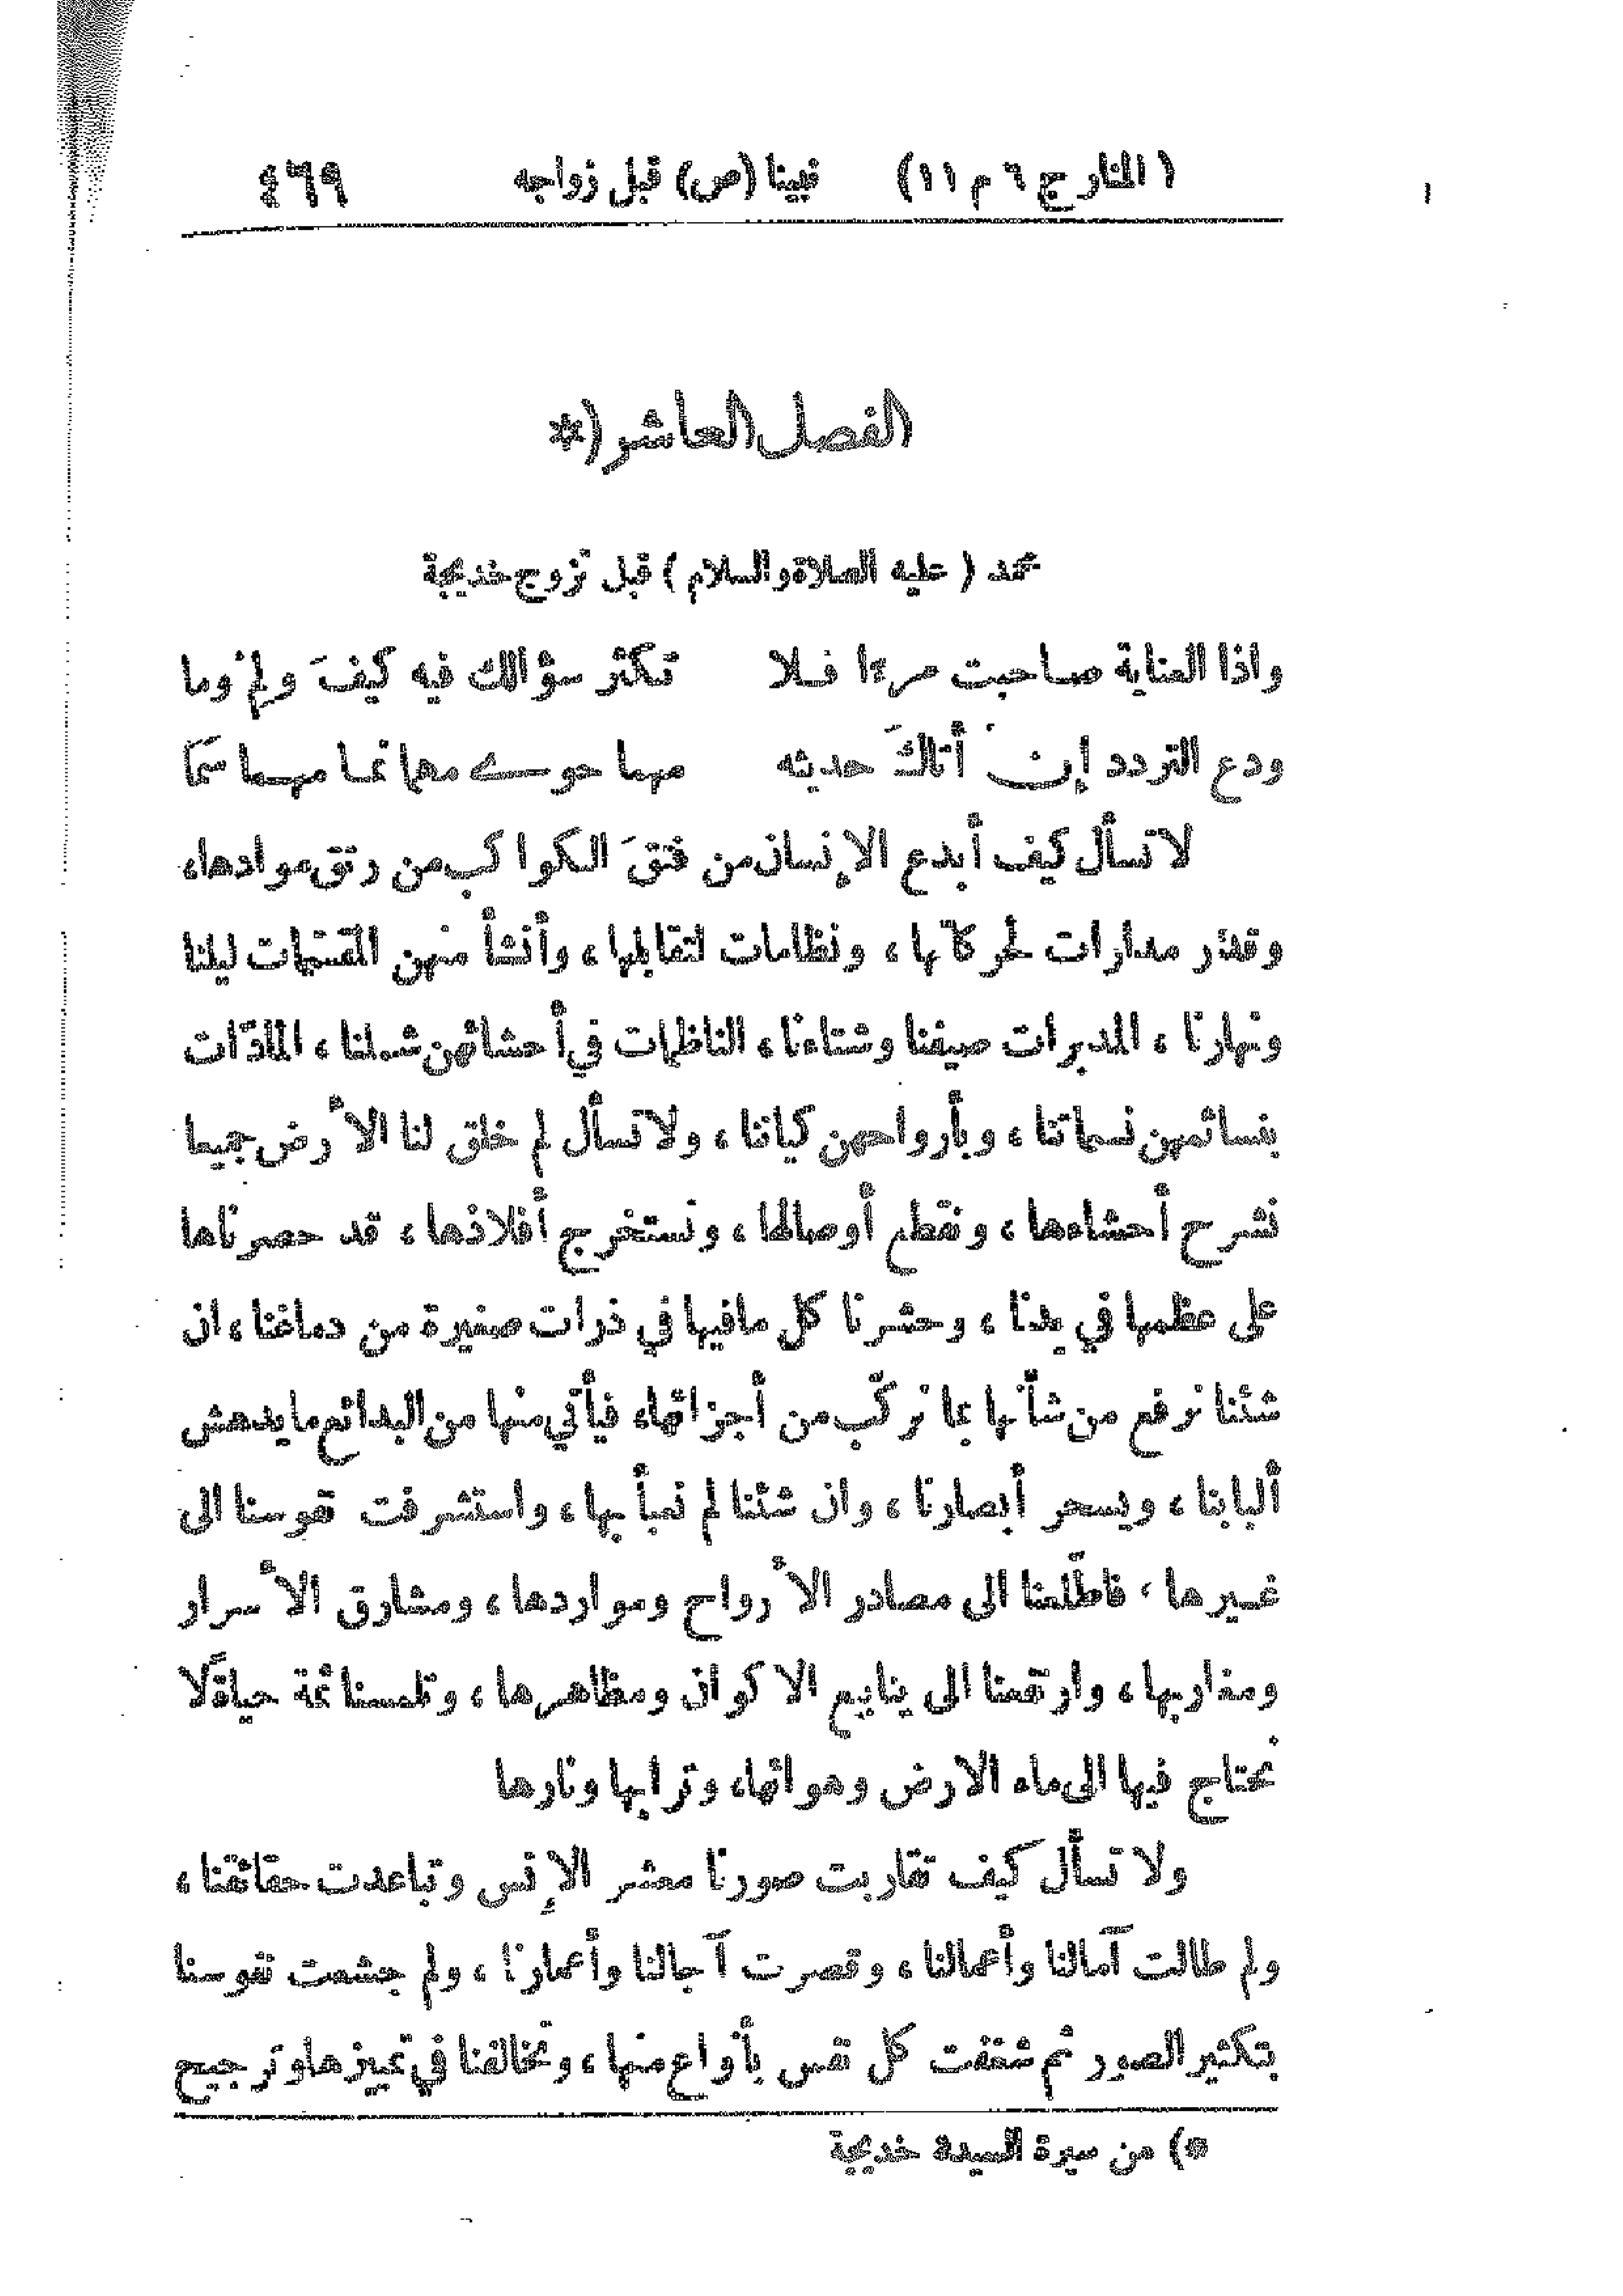 ( المنار ج ٦ م ١١ ) نبينا (ص) قبل زواجه ٤٦٩
الفصل العاشر (*
محمد ( عليه الصلاة والسلام ) قبل تزوج خديجة
واذا العناية صاحبت مرءا فلا تكثر سؤالك فيه كيفَ ولمْ وما
ودع التردد إن أتاكَ حديثه مهما حوى معما نما مهما سَمَا
لا تسأل كيف أبدع الإنسان من فتقَ الكواكب من رتق موادها،
وقدّر مدارات لحركاتها، ونظامات لتقابلها، وأنشأ منهن المقسّمات ليلنا
ونهارنا، المدبرات صيفنا وشتاءنا، الناظمات في أحشائهن شملنا، المادّات
بنسائمهن نسماتنا، وبأرواحهن كياننا، ولا تسأل لم خلق لنا الأرض جميعا
نشرح أحشاءها، ونقطع أوصالها، ونستخرج أفلاذها، قد حصرناها
على عظمها في يدنا، وحشرنا كل ما فيها في ذرات صغيرة من دماغنا، ان
شئنا نرفع من شأنها بما نركّب من أجزائها، فيأتي منها من البدائع ما يدهش
ألبابنا، ويسحر أبصارنا، وان شئنا لم نعبأ بها، واستشرفت نفوسنا الى
غيرها، فاطّلعنا الى مصادر الأرواح ومواردها، ومشارق الأسرار
ومغاربها، وارتقينا الى ينابيع الاكوان ومظاهرها، وتلمسنا ثمة حياةً لا
نحتاج فيها الى ماء الارض وهوائها، وترابها ونارها
ولا تسأل كيف تقاربت صورنا معشر الإنس وتباعدت حقائقنا،
ولم طالت آمالنا وأعمالنا، وقصرت آجالنا وأعمارنا، ولم جشمت نفوسنا
بتكثير الصور ثم شغفت كل نفس بأنواع منها، وتخالفنا في تمييزها وترجيح
*) من سيرة السيدة خديجة